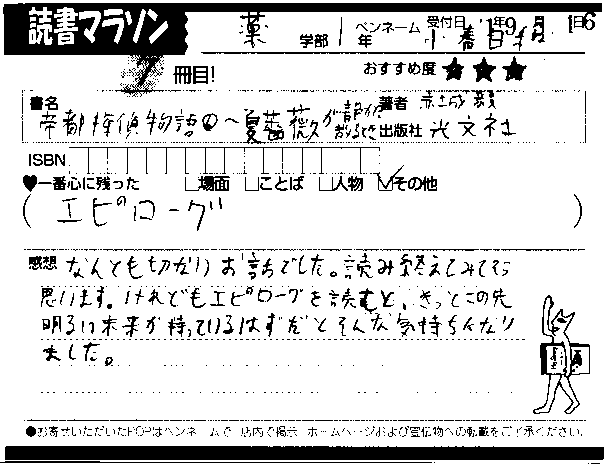 読書マラソン
薬 学部 1年 ペンネーム 小春日和 受付日 年9月16日
7冊目! おすすめ度 ★★★
書名 帝都探偵物語① ～夏薔薇が 著者 赤城毅
出版社 光文社
ISBN
♥一番心に残った □場面 □ことば □人物 ☑その他
(エピローグ)
感想 なんとも切ないお話でした。読み終えてみてそう
思います。けれどもエピローグを読むと、きっとこの先
明るい未来が待っているはずだとそんな気持ちになり
ました。
●お寄せいただいたPOPはペンネームで 店内で掲示 ホームページおよび宣伝物への転載をご了承ください。